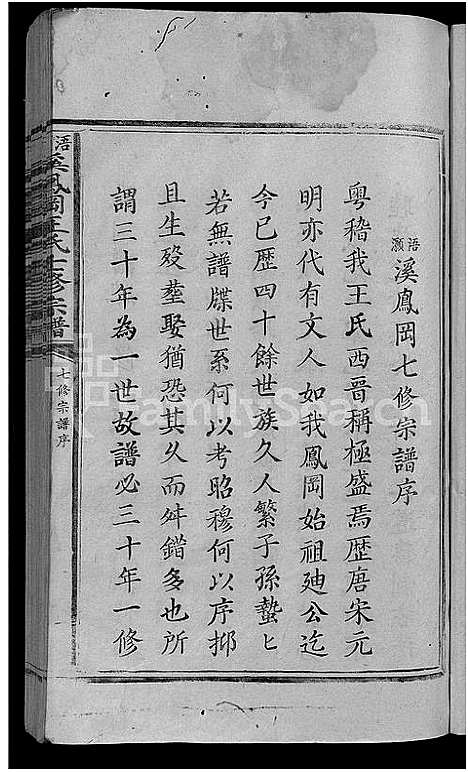 浯灝溪鳳岡七修宗譜序
粵稽我王氏西晉稱極盛焉歷唐宋元
明亦代有文人如我鳳岡始祖廸公迄
今已歷四十餘世族久人繁子孫蟄匕
若無譜牒世系何以考昭穆何以序抑
且生歿塟娶猶恐其久而舛錯多也所
謂三十年為一世故譜必三十年一修
溪鳳岡王氏七修宗譜
七修宗譜序
FamilySearch